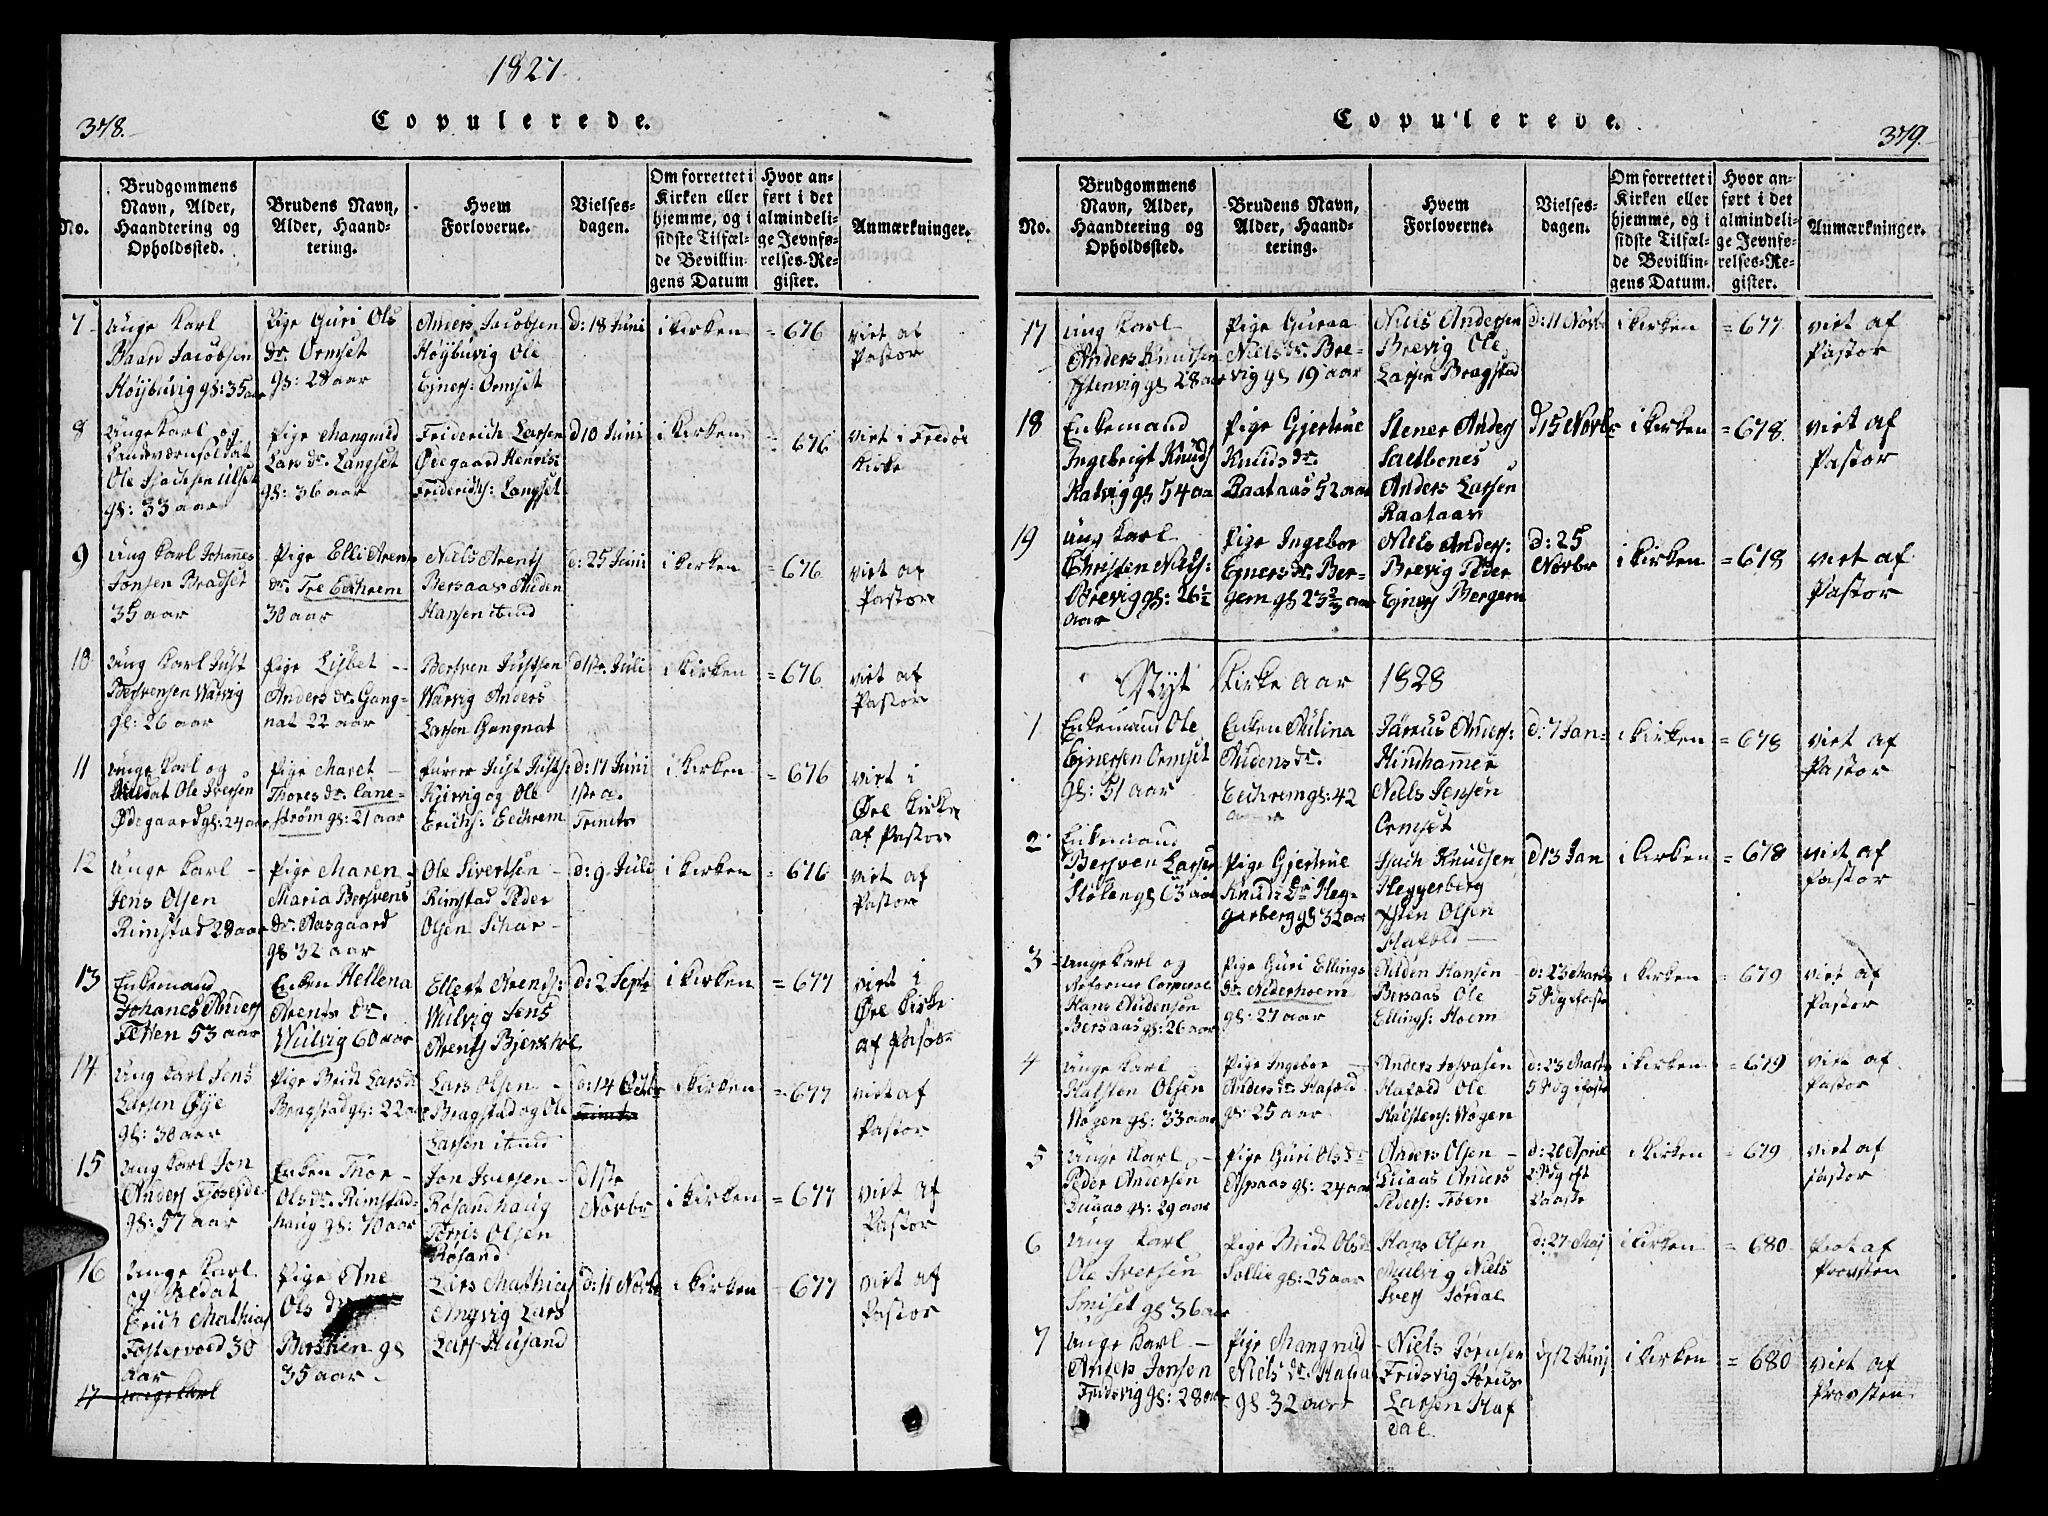 1827.
378.
Copulerede.
No.
Brudgommens Navn, Alder, Haandtering og Opholdssted.
Brudens Navn, Alder, Haandtering.
Hvem Forloverne.
Vielses-dagen.
Om forrettet i Kirken eller hjemme, og i sidste Tilfælde Bevillingens Datum
Hvor anført i det almindelige Jevnførelses-Register.
Anmærkninger.
7 Unge Karl Baard Jacobsen Høijbuvig gs: 35 aar
Pige Guri Ols dr. Ormset gs: 28 aar
Anders Jacobsen Høijbuvig Ole Ejners: Ormset
d: 18 Juni
i Kirken
= 676
viet af Pastor
8 Unge Karl og Landværnsoldat Ole Isachsen Ulset gs: 33 aar
Pige Mangnild Lars dr. Langset gs: 36 aar
Friderich Larsen Ødegaard Henrich Friderichs: Langset
d 10 Juni
i Kirken
= 676
viet i Fredøe Kirke
9 Ung Karl Johannes Jonsen Bradset 35 aar
Pige Elli Arens dr. Tre Eechrem 30 aar
Niels Arents Bersaas Auden Hansen ibmd
d: 25 Juni
i Kirken
= 676
viet af Pastor
10 Ung Karl Just Bersvensen Warvig gs: 26 aar
Pige Lisbet Anders dr. Gangnat 22 aar
Bersven Justsen Warvig Anders Larsen Gangnat
d 1ste Juli
i Kirken
= 676
viet af Pastor
11 Unge Karl og Soldat Ole Iversen Ødegaard gs: 24 aar
Pige Maret Thores dr. Canestrøm gs: 21 aar
Just Justs: Kjirvig og Ole Erichs: Eechrem
d: 17 Juni 1ste a. Trinits
i Kirken
= 676
viet i Øre Kirke af Pastor
12 Unge Karl Jens Olsen Rimstad 28 aar
Pige Maren Maria Bersvens dr. Aasgaard gs 32 aar
Ole Sivertsen Rimstad Peder Olsen Schar
d: 9 Juli
i Kirken
= 676
viet af Pastor
13 Enkemand Johanes Anders Fetten 53 aar
Enken Hellena Arents dr. Wulvig 60 aar
Ellert Arends: Wulvig Jens Arents Bjerkhol
d: 2 Septr
i Kirken
= 677
viet i Øre Kirke af Pastor
14 Ung Karl Jens Larsen Øije gs: 30 aar
Pige Beidt Larsdr Bragstad gs: 22 aar
Lars Olsen Bragstad og Ole Larsen ibmd
d: 14 Octbr
i Kirken
= 677
viet af Pastor
15 Ung Karl Jon Anders gs: 57 aar
Enken Thor Olsdr. Rimstadhaug gs: 70 aar
Jon Iversen Røsandhaug Tørris Olsen Røsand
d 1ste Novbr
i Kirken
= 677
viet af Pastor
16 Unge Karl og Soldat Erich Mathias Fostervold 30 aar
Pige Ane Ols dr Berstien gs 35 aar
Lars Mathias Lars Lars Husand
d: 11 Novbr
i Kirken
= 677
viet af Pastor
17 unge Karl
Copulerede.
379.
No.
Brudgommens Navn, Alder, Haandtering og Opholdssted.
Brudens Navn, Alder, Haandtering.
Hvem Forloverne.
Vielses-dagen.
Om forrettet i Kirken eller hjemme, og i sidste Tilfælde Bevillingens Datum.
Hvor anført i det almindelige Jevnførelses-Register.
Anmærkninger.
17 Ung Karl Anders Knutsen Stenvig gs 28 aar
Pige Guraa Niels dr. Brevig gs 19 aar
Niels Andersen Brevig Ole Larsen Bragstad
d: 11 Novbr
i Kirken
= 677
viet af Pastor
18 Enkemand Ingebrigt Knuds Kalvig gs 54 aar
Pige Gjertrue Knuds dr. Raataas 52 aar
Stener Anders Saltbones Anders Larsen Raataas
d 15 Novbr
i Kirken
= 678
viet af Pastor
19 Ung Karl Christen Niels: Brevig gs: 26½ aar
Pige Ingebor Ejners dr. Bergem gs 23 aar
Niels Anders: Brevig Peder Ejners Bergem
d: 25 Novbr
i Kirken
= 678
viet af Pastor
Nyt Kirke aar 1828
1 Enkemand Ole Ejnersen Ormset gs: 51 aar
Enken Aulina Audens dr. Eechrem gs: 42
Anders: Hindhammer Niels Jensen Ormset
d: 7 Jan
i Kirken
= 678
viet af Pastor
2 Enkemand Bersven Larsen Hølen gs 63 aar
Pige Gjertrue Knuds dr Heggerberg gs 32 aar
Isach Knudsen Heggerberg Sten Olsen Hafold
d 13 Jan
i Kirken
= 678
viet af Pastor
3 Unge Karl og Corporal Hans Audensen Bersaas gs: 26 aar
Pige Guri Ellings dr. Nederhoem gs: 27 aar
Auden Hansen Bersaas Ole Ellings: Hoem
d: 23 Marts
i Kirken
= 679
viet af Pastor
4 Unge Karl Halsten Olsen Wogen gs: 33 aar
Pige Ingebor Anders dr Hafold gs: 25 aar
Anders Hafold Ole Halstens: Wogen
d: 23 Marts
i Kirken
= 679
viet af Pastor
5 Unge Karl Peder Andersen gs: 29 aar
Pige Guri Ols dr Espaas gs: 24 aar
Anders Olsen Anders Peders:
d: 20 April
i Kirken
= 679
viet af Pastor
6 Ung Karl Ole Iversen Smiset gs 36 aar
Pige Beidt Olsdr Sollie gs: 25 aar
Hans Olsen Niels Ivers Sørdal
d: 27 Maj
i Kirken
= 680
af Provsten
7 Unge Karl Anders Jonsen Fridsvig gs: 28 aar
Pige Mangnild Niels dr gs 32 aar
Niels Fridsvig Larsen Hafdal
d 12 Junj
i Kirken
= 680
viet af Provsten